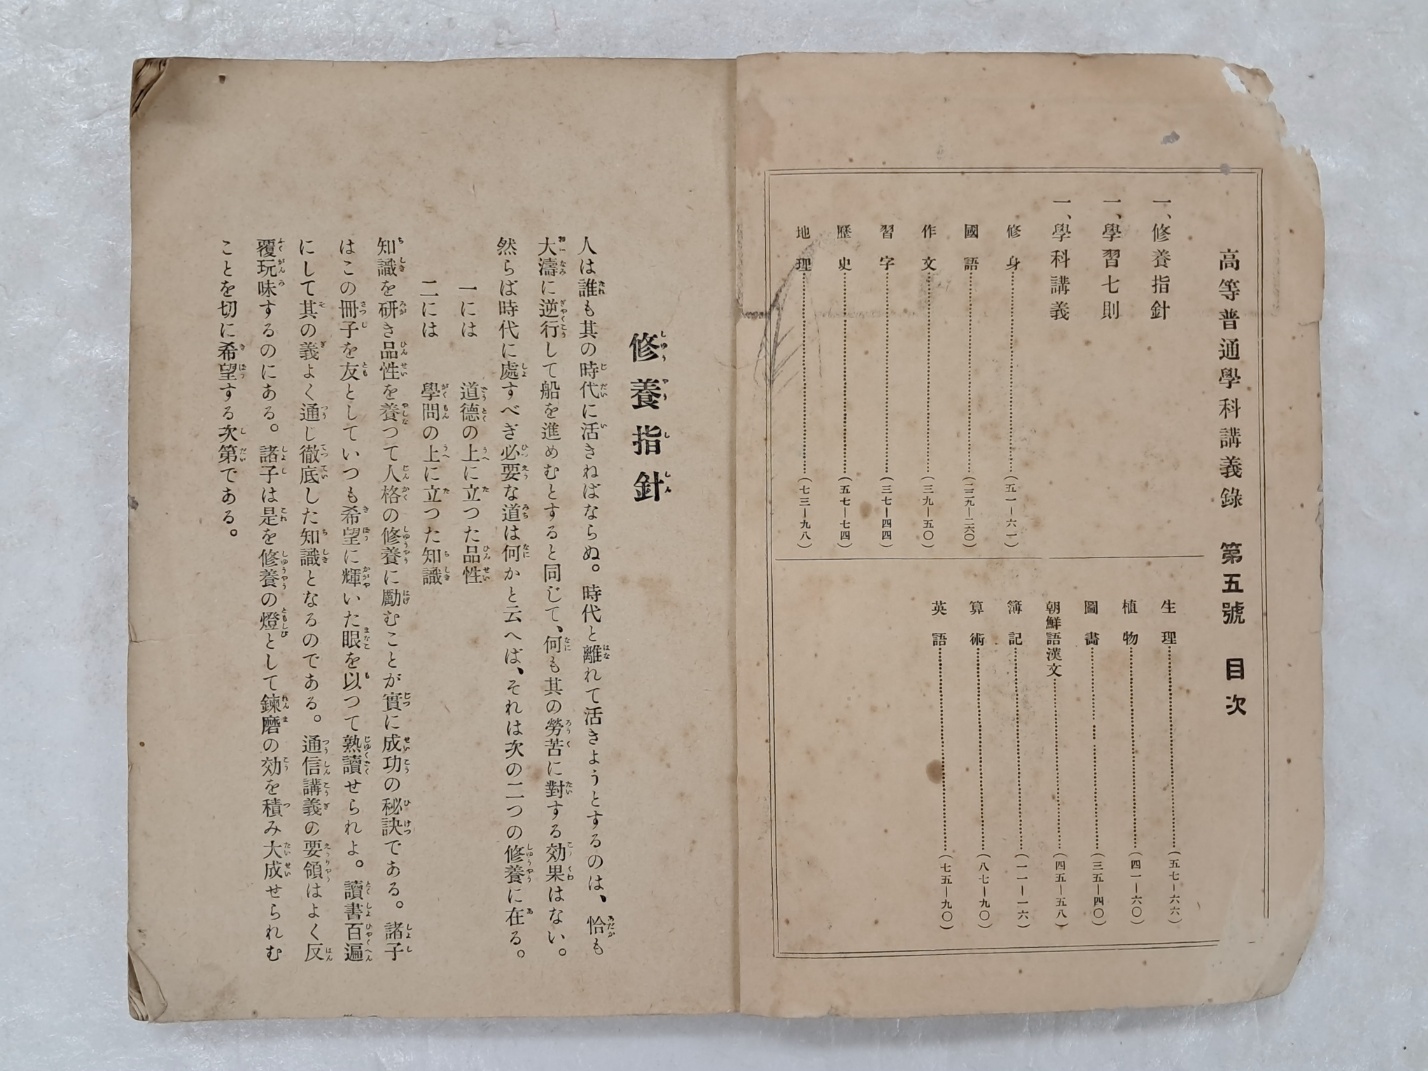 高等普通學科講義錄 第五號 目次
一、修養指針
一、學習七則
一、學科講義
修身……………(五一—六二)
國語……………(二三九—二六〇)
作文……………(三九—五〇)
習字……………(三七—四四)
歷史……………(五七—七四)
地理……………(七三—九八)
生理……………(五七—六六)
植物……………(四一—六〇)
圖畵……………(三五—四〇)
朝鮮語漢文……………(四五—五八)
簿記……………(一一—一六)
算術……………(八七—九〇)
英語……………(七五—九〇)
修養指針
人は誰も其の時代に活きねばならぬ。時代と離れて活きようとするのは、恰も
大濤に逆行して船を進めむとすると同じて、何も其の勞苦に對する効果はない。
然らば時代に處すべき必要な道は何かと云へば、それは次の二つの修養に在る。
一には 道德の上に立つた品性
二には 學問の上に立つた知識
知識を研き品性を養つて人格の修養に勵むことが實に成功の秘訣である。諸子
はこの冊子を友としていつも希望に輝いた眼を以つて熟讀せられよ。讀書百遍
にして其の義よく通じ徹底した知識となるのである。通信講義の要領はよく反
覆玩味するのにある。諸子は是を修養の燈として鍊磨の効を積み大成せられむ
ことを切に希望する次第である。